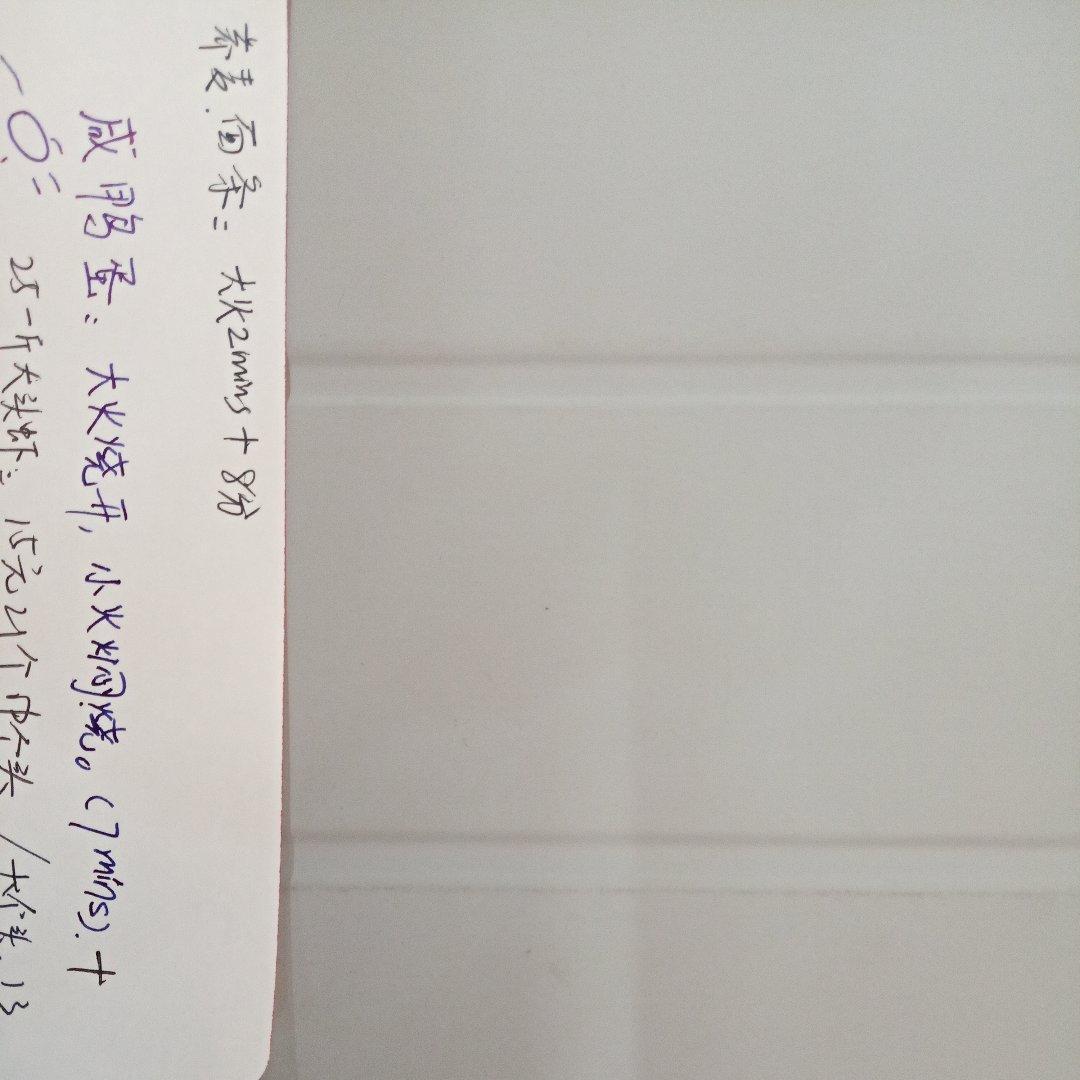 荞麦面条: 大火2mins + 8分
咸鸭蛋: 大火烧开, 小火焖烧。(7mins). +
25一斤大头虾: 15元21个中个头 / 大个头. 13